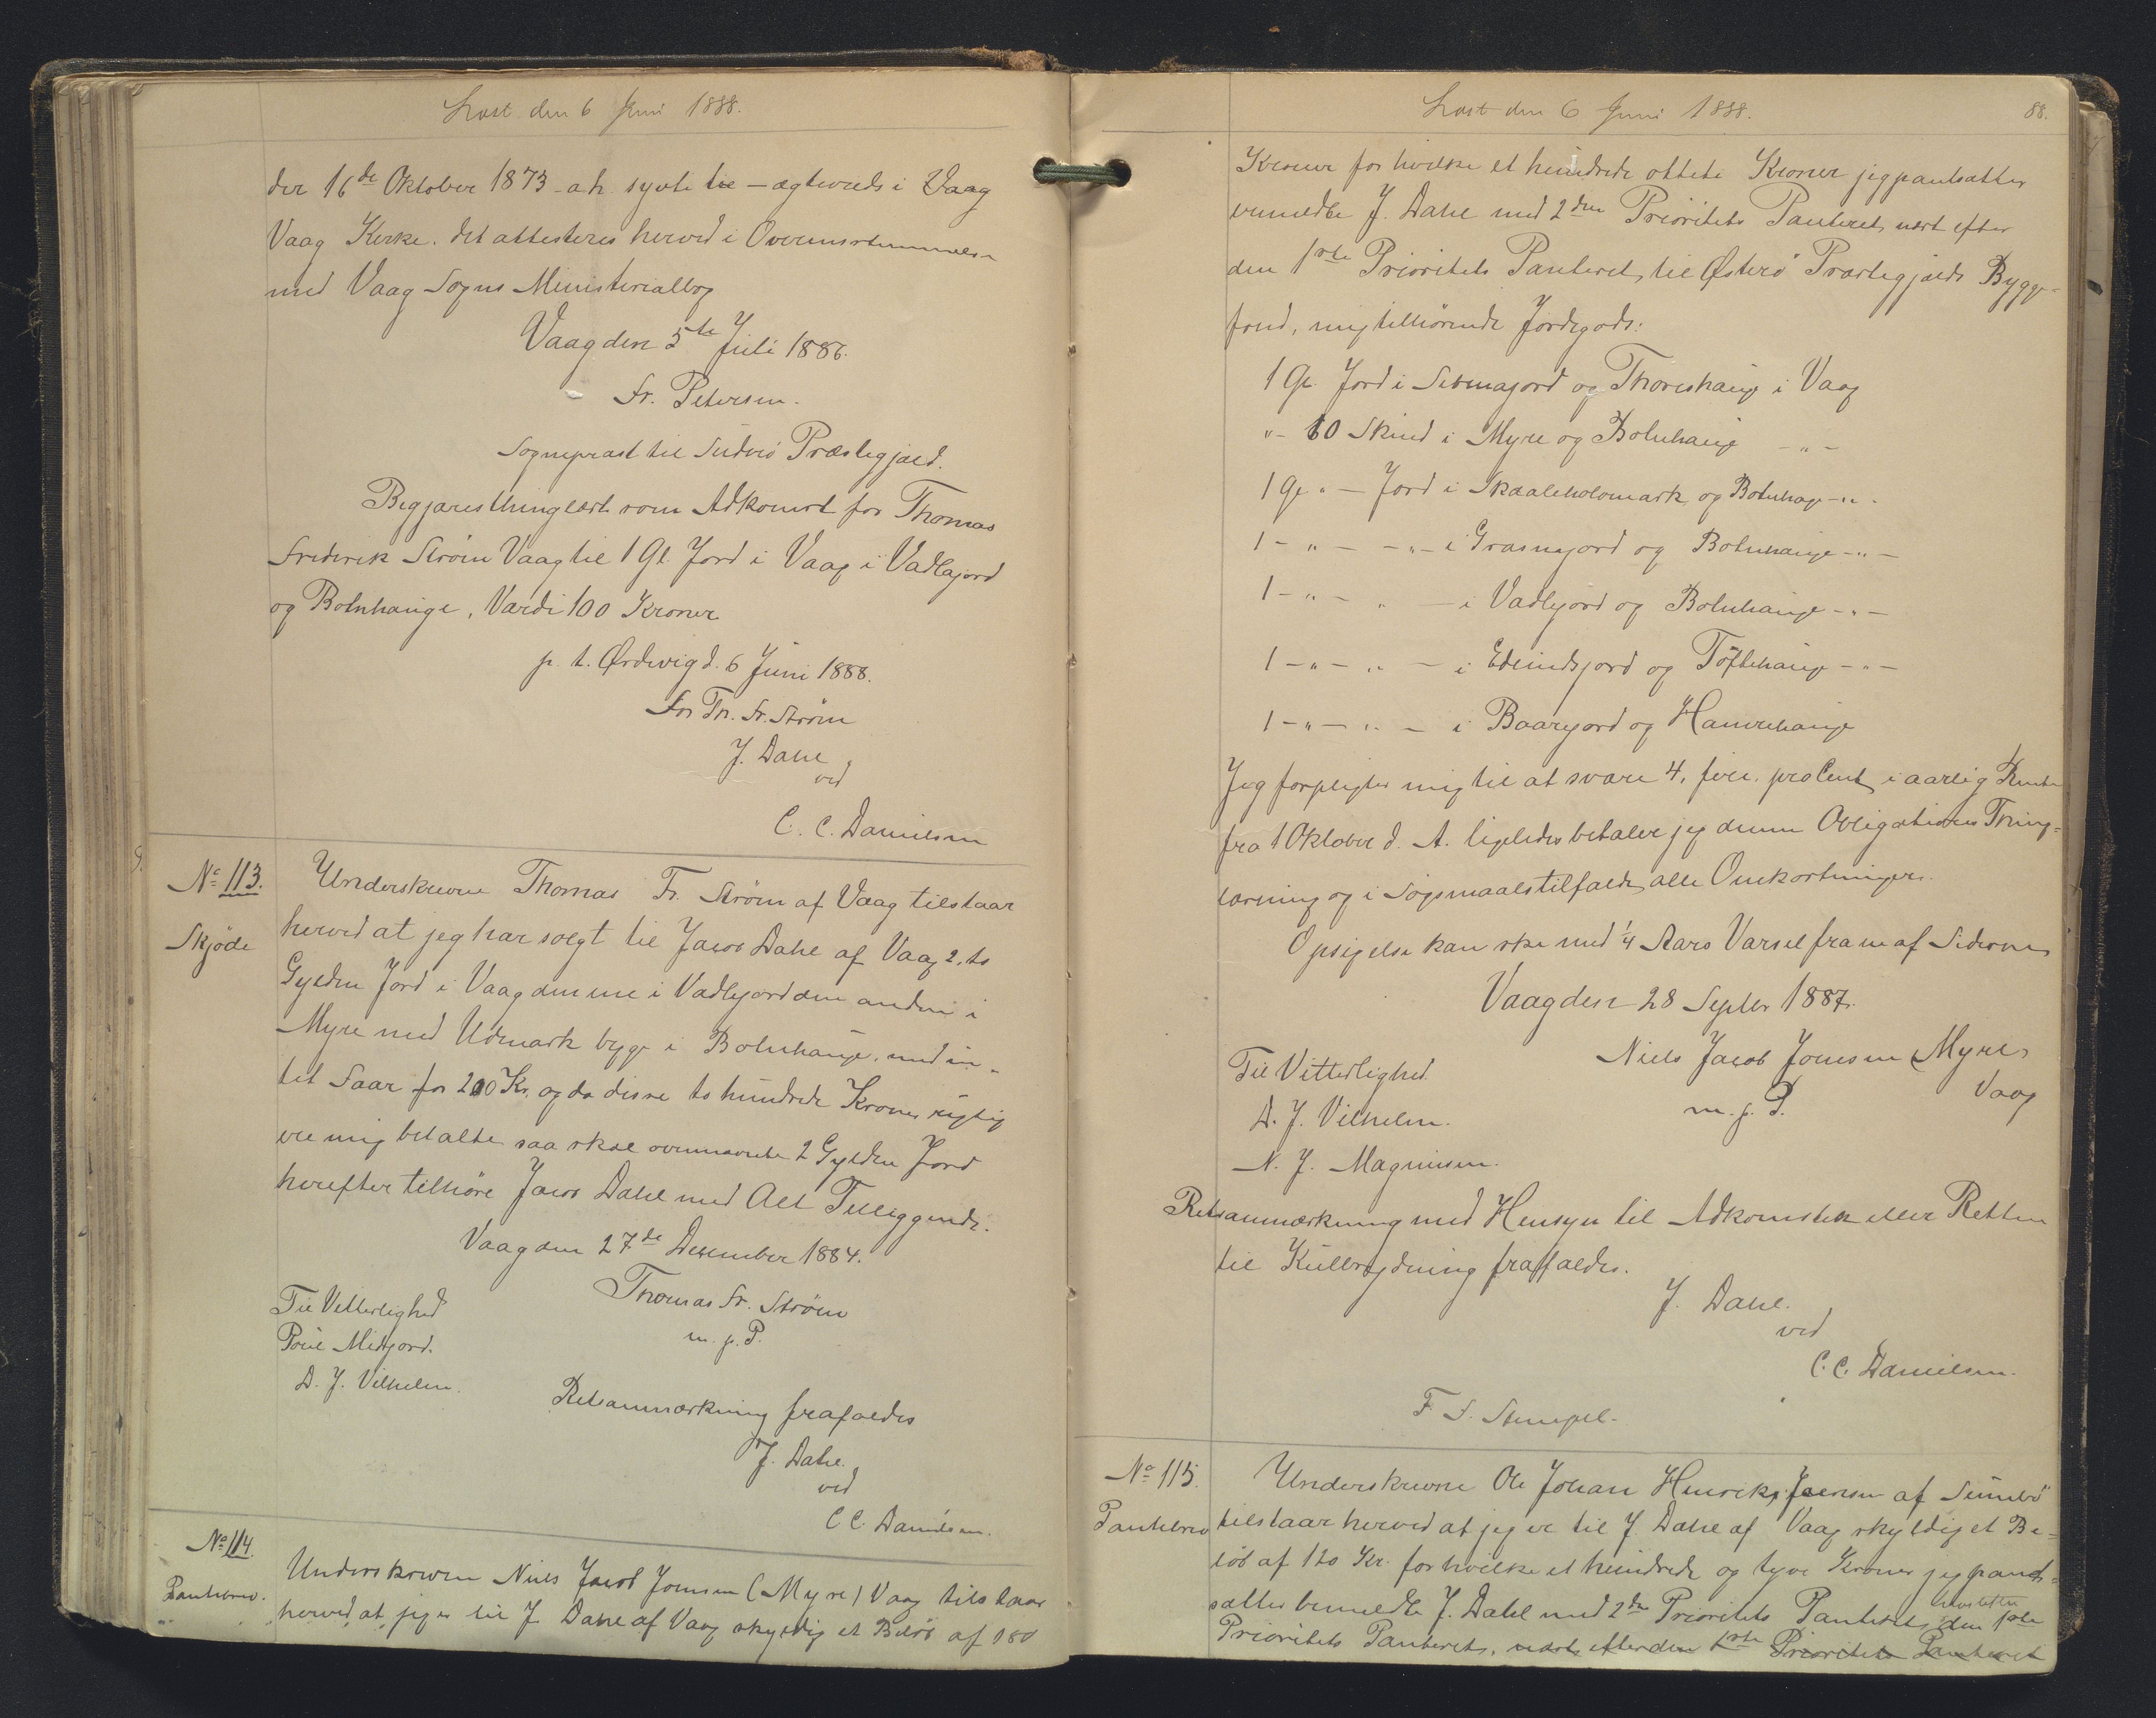 Læst den 6 Juni 1888.
den 16de Oktober 1873 a tr. syvti tre - ægteviede i Vaag
Vaag Kirke. det attesteres herved i Overensstemmelse
med Vaag Sogns Ministerialbog
Vaag den 5te Juli 1886.
Fr. Petersen.
Sognepræst til Suderö Præstegjæld.
Begjæres thinglæst som Adkomst for Thomas
Frederik Strøm Vaag til 1 Gl. Jord i Vaag i Vadlajord
og Botnhauge, Værdi 100 Kroner
p. t. Ørdevig d. 6 Juni 1888.
For Th. Fr. Strøm
J. Dahl
ved
C. C. Danielsen
No 113.
Skjøde
Underskrevne Thomas Fr. Strøm af Vaag tilstaar
herved at jeg har solgt til Jacob Dahl af Vaag 2, to
Gylden Jord i Vaag den ene i Vadlejord den anden i
Myre med Udmark bygt i Botnhauge, med in-
tet Faar for 200 Kr. og da disse to hundrede Kroner rigtig
ere mig betalte saa skal ovennævnte 2 Gylden Jord
herefter tilhöre Jacob Dahl med Alt Tilliggende.
Vaag den 27de December 1884.
Thomas Fr. Strøm
m. p. P.
Til Vitterlighed
Poul Midjord.
D. J. Vilhelm.
Retsanmærkning frafaldes
J. Dahl.
ved
C C. Danielsen.
No 114.
Pantebrev.
Underskrevne Niels Jacob Joensen (Myre) Vaag tilstaar
herved at jeg er til J. Dahl af Vaag skyldig et Beløb af 180
Læst den 6 Juni 1888.
88.
Kroner for hvilke et hundrede ottete Kroner jeg pantsætter
bemeldte J. Dahl med 2den Prioritets Panteret, næst efter
den 1ste Prioritets Panteret til Østerö Præstegjælds Bygge-
fond, mig tilhörende Jordegods:
1 Gl. Jord i Sevmajord og Thoreshauge i Vaag
" - 10 Skind i Myre og Botnhauge - " -
1 Gl " - Jord i Skaaleholsmark og Botnhage - " -
1 - " - - " - i Græsnajord og Botnhauge - " -
1 - " - " - i Vadlejord og Botnhauge - " -
1 - " - " - i Edeindsjord og Toftehauge - " -
1 - " - " - i Baarejord og Hamrehauge
Jeg forpligter mig til at svare 4, fire, pro Cent i aarlig Rente
fra 1 Oktober d. A. ligeledes betaler jeg denne Obligations Thing-
læsning og i Søgsmaalstilfælde, alle Omkostninger.
Opsigelse kan ske med 1/4 Aars Varsel fra en af Siderne
Vaag den 28 Septbr 1887.
Niels Jacob Joensen (Myre)
Vaag
m. p. P.
Til Vitterlighed
D. J. Vilhelm.
N. J. Magnusen.
Retsanmærkning med Hensyn til Adkomsten eller Retten
til Kulbrydning fraffaldes.
J. Dahl.
ved
C. C. Danielsen.
F. S. Stempel.
No 115.
Pantebrev
Underskrevne Ole Johan Henriks Joensen af Sumbö
tilstaar herved at jeg er til J. Dahl af Vaag skyldig et Be-
löb af 120 Kr. for hvilke et hundrede og tyve Kroner jeg pant-
sætter bemeldte J. Dahl med 2den Prioritets Panteret, næstefter den 1ste
Prioritets Panteret, næst, efter den 1ste Prioritets Panteret